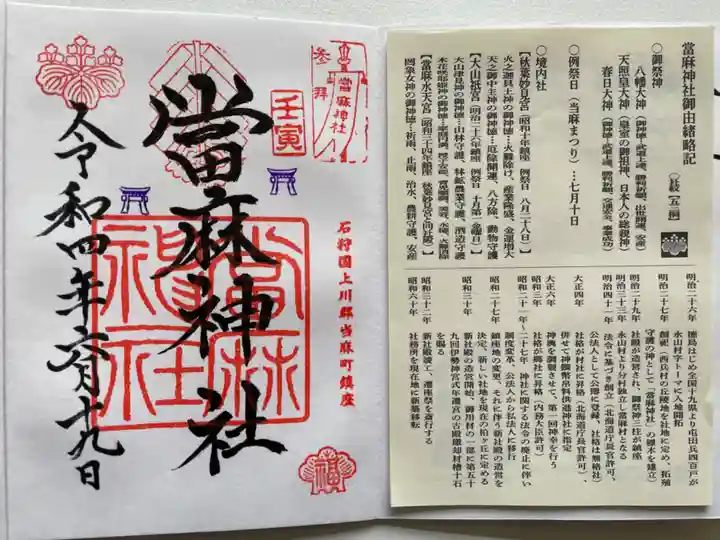 當麻神社御由緒略記
○御祭神
八幡大神
天照皇大神（皇室の御祖神、日本人の総親神）
春日大神
○例祭日（当麻まつり）…七月十日
○境内社
【秋葉妙見宮（昭和十年鎮座　例祭日　八月二十八日）】
火之迦具土神の御神徳…火難除け、産業隆盛、金運増大
天之御中主神の御神徳…厄除開運、八方除、動物守護
【大山祇宮（明治二十六年鎮座　例祭日　十月第二金曜日）】
大山津見神の御神徳…山林守護、林鉱農業守護、酒造守護
【當麻水天宮（昭和三十四年鎮座　秋葉妙見宮と同社殿）】
罔象女神の御神徳…祈雨、止雨、治水、農耕守護、安産
明治二十六年
徳島はじめ全国十九県より屯田兵四百戸が
永山村字トーマに入地開拓
明治二十七年
創祀（西兵村の丘陵地を社地に定め、拓殖
守護の神として「當麻神社」の標木を建立）
明治二十九年
社殿が造営され、御祭神三柱が鎮座
明治三十三年
永山村より分村独立し當麻村となる
明治四十一年
法令に基づき創立（北海道庁長官許可、
公法人として公簿に登録、社格は無格社）
大正四年
社格が村社に昇格（北海道庁長官許可）、
併せて神饌幣帛料供進神社に指定
大正六年
神輿を調製させて、第一回神幸を行う
昭和三年
社格が郷社に昇格（内務大臣許可）
昭和二十一～二十七年
神社に関する法令の廃止に伴い
制度変革、公法人から私法人に移行
昭和二十七年
鎮座地の変更、それに伴う新社殿の造営を
決定、新しい社地を現在の柏ヶ丘に定める
昭和三十年
新社殿の造営開始、御用材の一部に第五十
九回伊勢神宮式年遷宮の古殿撤却材檜十石
を賜る
昭和三十二年
新社殿竣工、遷座祭を斎行する
昭和六十年
社務所を現在地に新築移転
参拝
當麻神社
壬寅
當麻神社
石狩国上川郡当麻町鎮座
當麻神社
令和四年六月十九日
福